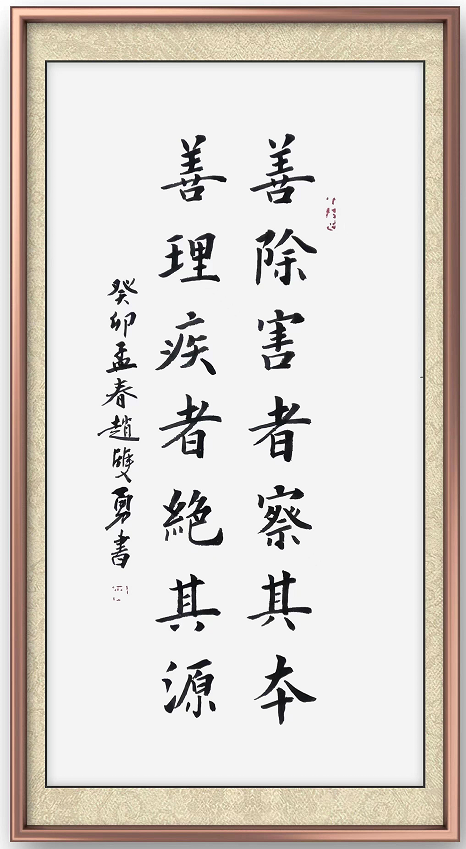 善除害者察其本
善理疾者絕其源
癸卯孟春趙雙勇書